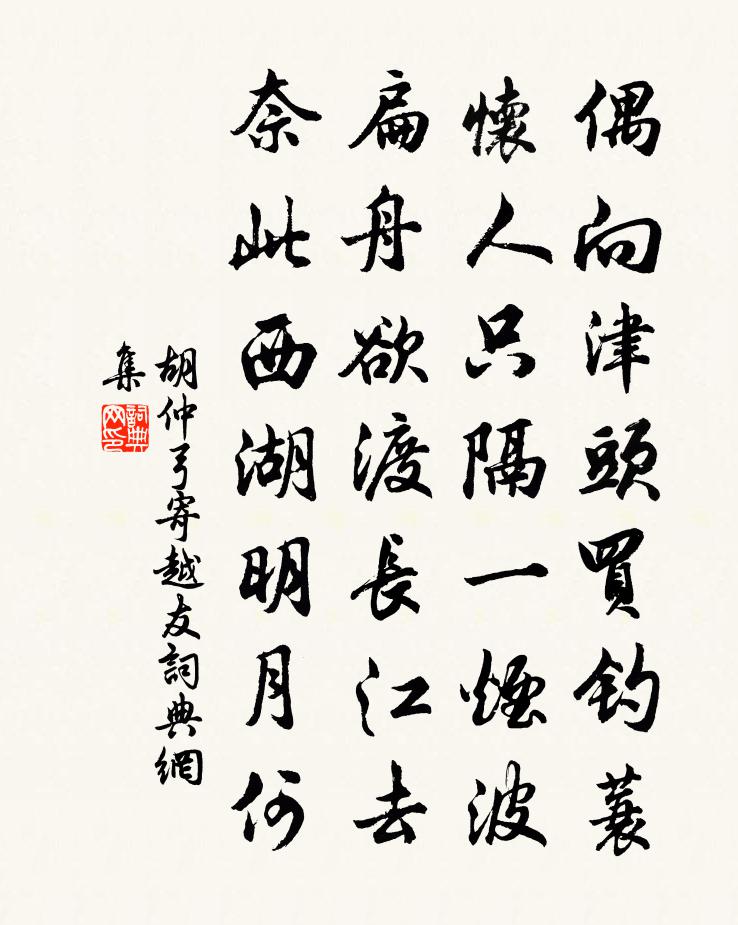 偶向津頭買釣蓑
懷人只隔一煙波
扁舟欲渡長江去
奈此西湖明月何
胡仲弓寄越友詞典網
集
詞典网印